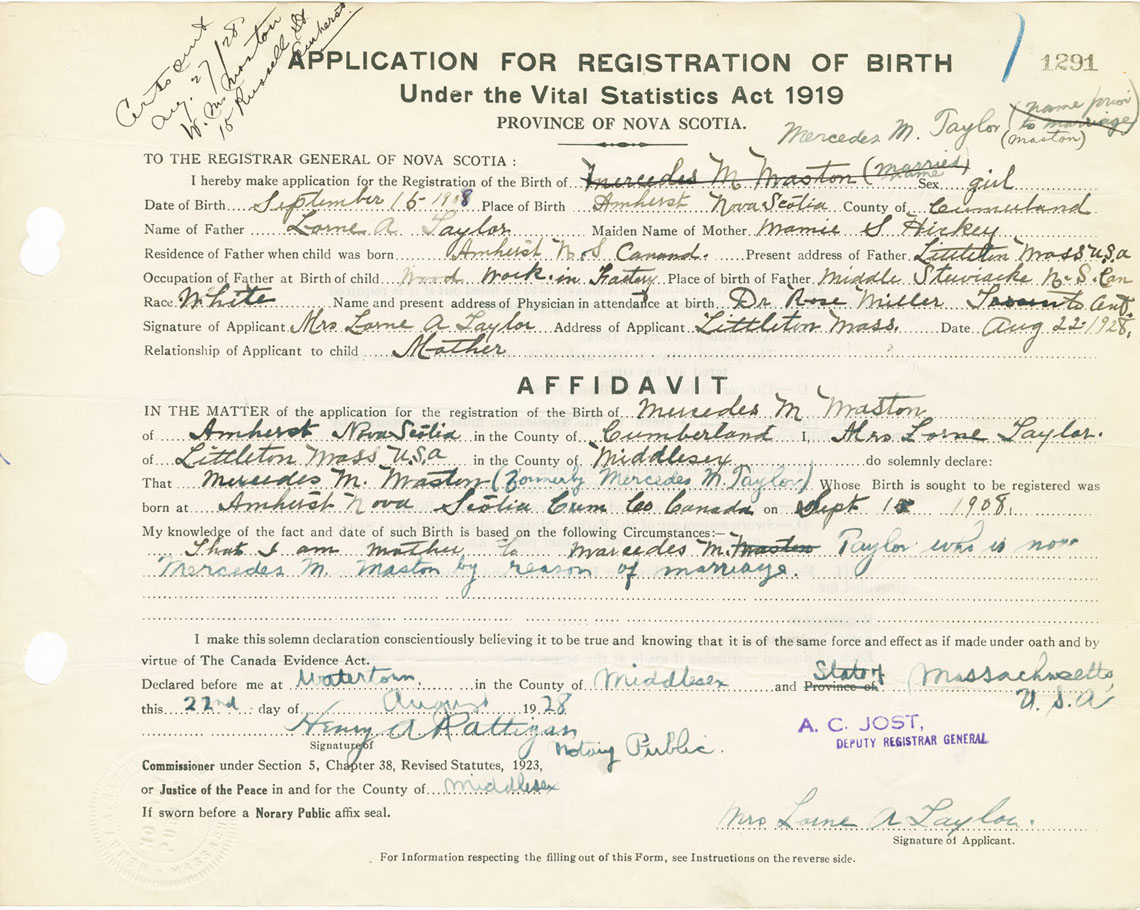 Cert sent
Aug. 27/28
W. M. Maston
15 Russell St
Amherst
APPLICATION FOR REGISTRATION OF BIRTH
1291
Under the Vital Statistics Act 1919
PROVINCE OF NOVA SCOTIA.
Mercedes M. Taylor (name prior to marriage) (Maston)
TO THE REGISTRAR GENERAL OF NOVA SCOTIA :
I hereby make application for the Registration of the Birth of Mercedes M Maston (married name) Sex girl
Date of Birth September 15 1908 Place of Birth Amherst Nova Scotia County of Cumberland
Name of Father Lorne A Taylor Maiden Name of Mother Mamie S Hickey
Residence of Father when child was born Amherst N. S Canand. Present address of Father Littleton Mass U.S.A
Occupation of Father at Birth of child Wood Work. in Factory Place of birth of Father Middle Stewiacke N. S. Can
Race White Name and present address of Physician in attendance at birth Dr Rose Miller Toronto Ont.
Signature of Applicant Mrs Lorne A Taylor Address of Applicant Littleton Mass. Date Aug 22 1928.
Relationship of Applicant to child Mother
AFFIDAVIT
IN THE MATTER of the application for the registration of the Birth of Mercedes M Maston
of Amherst Nova Scotia in the County of Cumberland I, Mrs Lorne Taylor.
of Littleton Mass U.S.A in the County of Middlesex do solemnly declare:
That Mercedes M. Maston (formerly Mercedes M. Taylor) Whose Birth is sought to be registered was
born at Amherst Nova Scotia Cum Co Canada on Sept 15 1908.
My knowledge of the fact and date of such Birth is based on the following Circumstances:—
That I am mother to Marcedes M. Maston Taylor who is now
Mercedes M. Maston by reason of marriage.
I make this solemn declaration conscientiously believing it to be true and knowing that it is of the same force and effect as if made under oath and by
virtue of The Canada Evidence Act.
Declared before me at Watertown in the County of Middlesex and Province of State of Massachusetts
this 22nd day of August 1928 U.S.A
Henry A Rattigan
Signature of Notary Public.
A. C. JOST,
DEPUTY REGISTRAR GENERAL
Commissioner under Section 5, Chapter 38, Revised Statutes, 1923,
or Justice of the Peace in and for the County of Middlesex
If sworn before a Norary Public affix seal.
Mrs Lorne A Taylor.
Signature of Applicant.
For Information respecting the filling out of this Form, see Instructions on the reverse side.